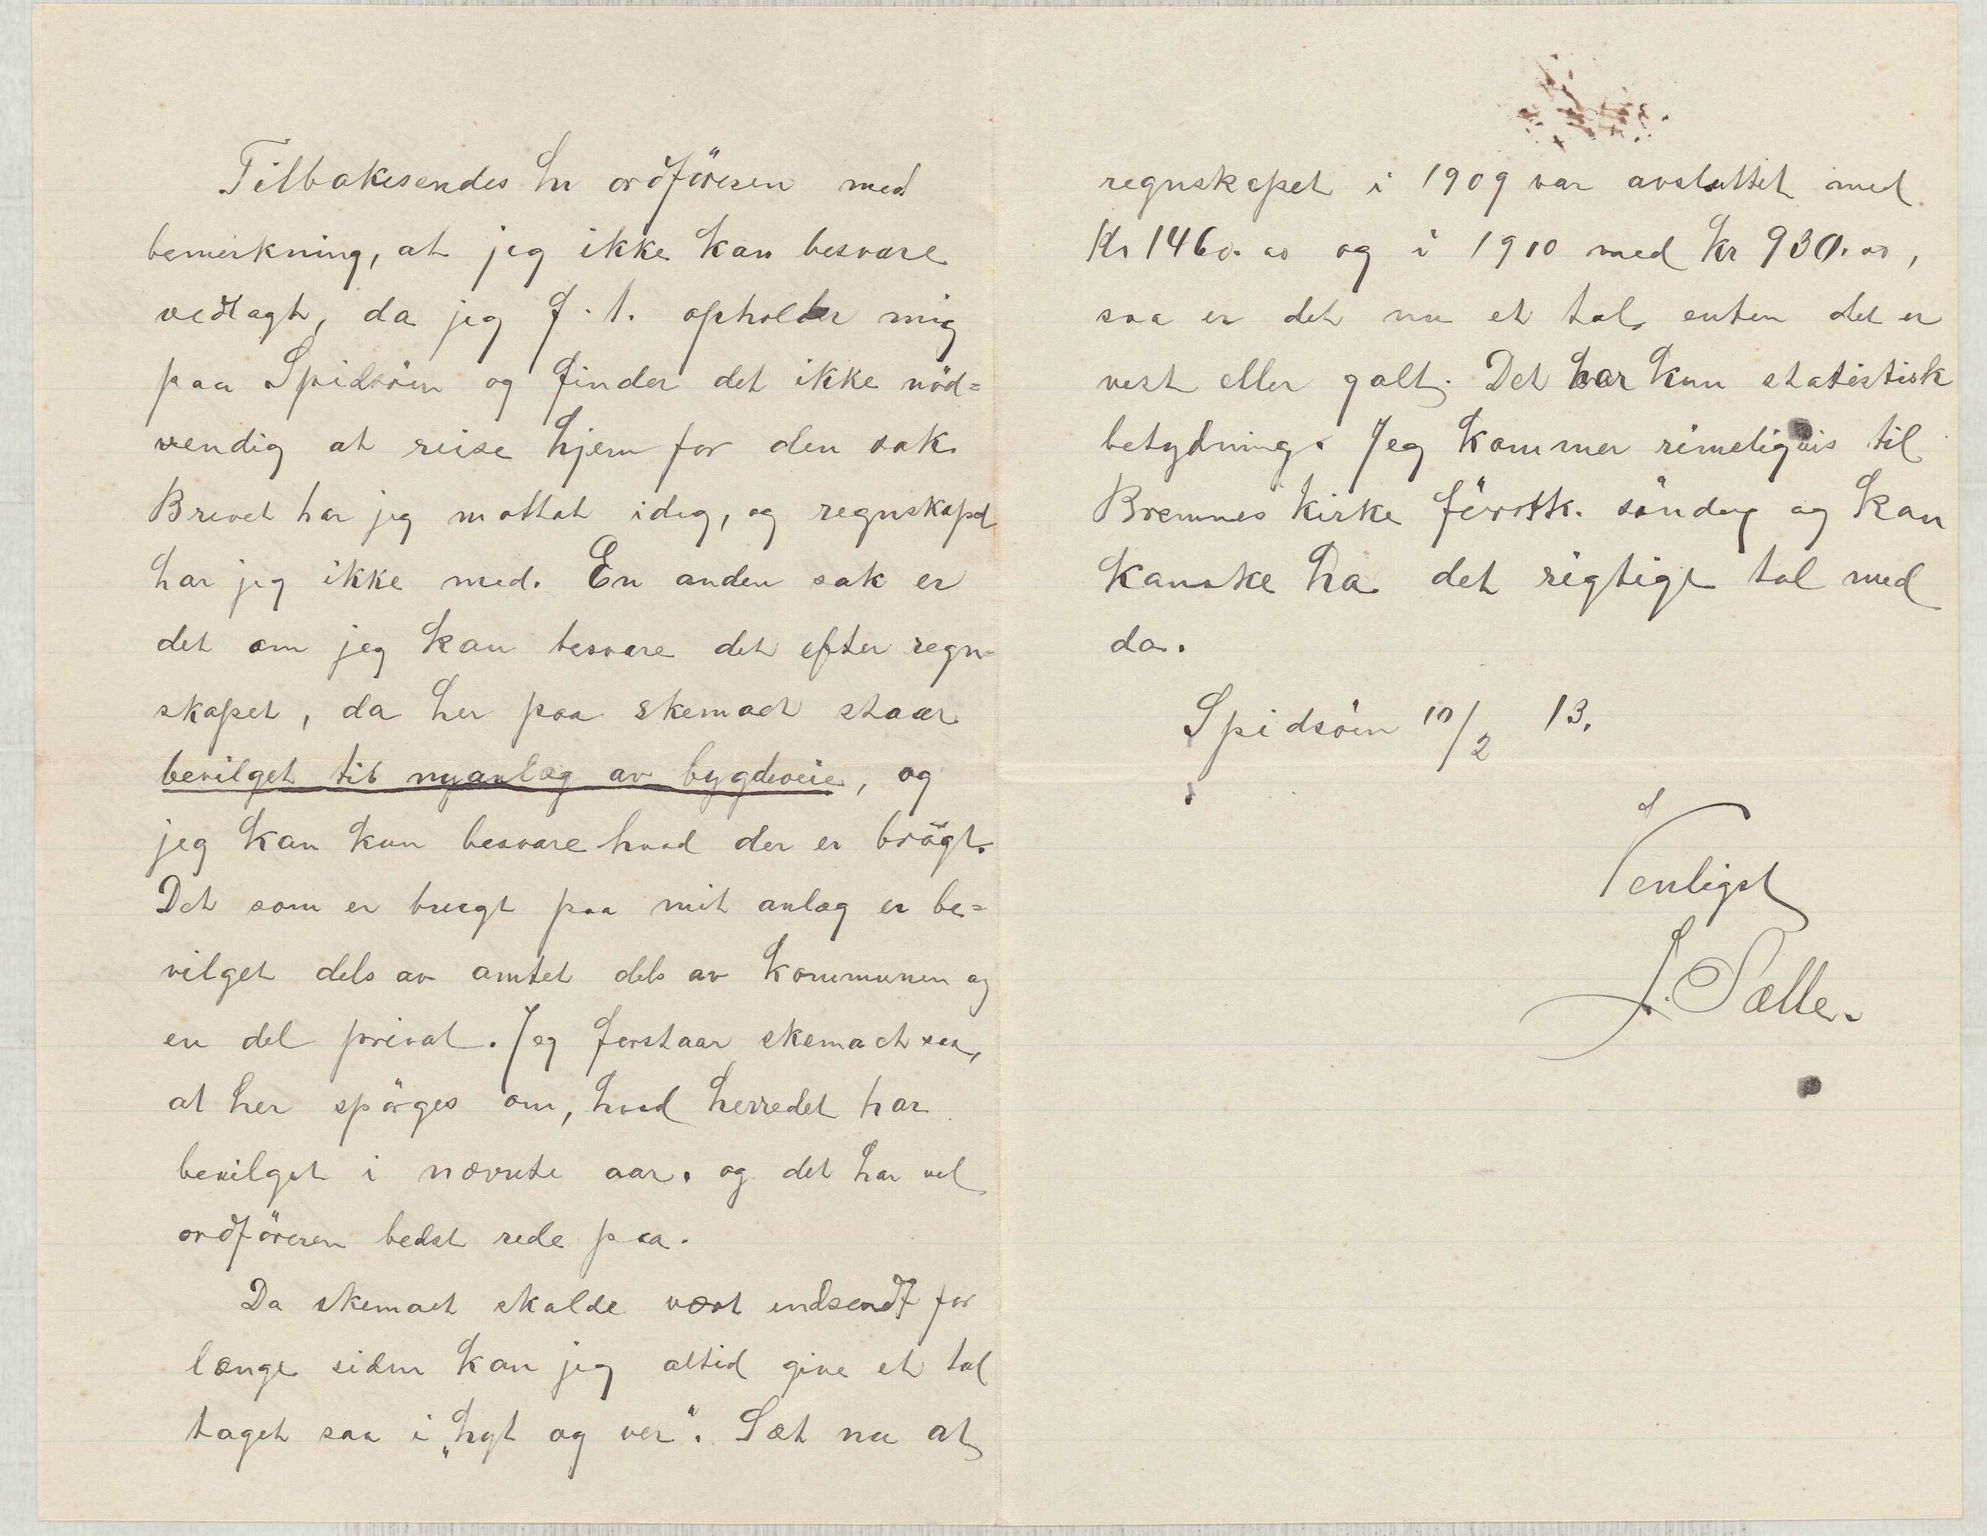 Tilbakesendes hr ordföreren med
bemerkning, at jeg ikke kan besvare
vedlagt, da jeg f. t. opholder mig
paa Spidsöen og finder det ikke nöd=
vendig at reise hjem for den sak.
Brevet har jeg mottat idag, og regnskapet
har jeg ikke med. En anden sak er
det om jeg kan besvare det efter regn-
skapet, da her paa skemaet staar
bevilget til nyanlæg av bygdeveie, og
jeg kan kun besvare hvad der er brögt.
Det som er brugt paa mit anlæg er be=
vilget dels av amtet dels av kommunen og
en del privat. Jeg forstaar skemaet saa,
at her spörges om, hvad herredet har
bevilget i nævnte aar. og det har vel
ordföreren bedst rede paa.
Da skemaet skulde vært indsendt for
længe siden kan jeg altid give et tal
taget saa i „hyt og ver“. Sæt nu at
regnskapet i 1909 var avsluttet med
Kr 1460.00 og i 1910 med Kr 930.00,
saa er det nu et tal, enten det er
rest eller galt. Det har kun statistisk
betydning. Jeg kommer rimeligvis til
Bremnes kirke förstk. söndag og kan
kanske ha det rigtige tal med
da.
Spidsöen 10/2 13.
Venligst
J. Sælle.